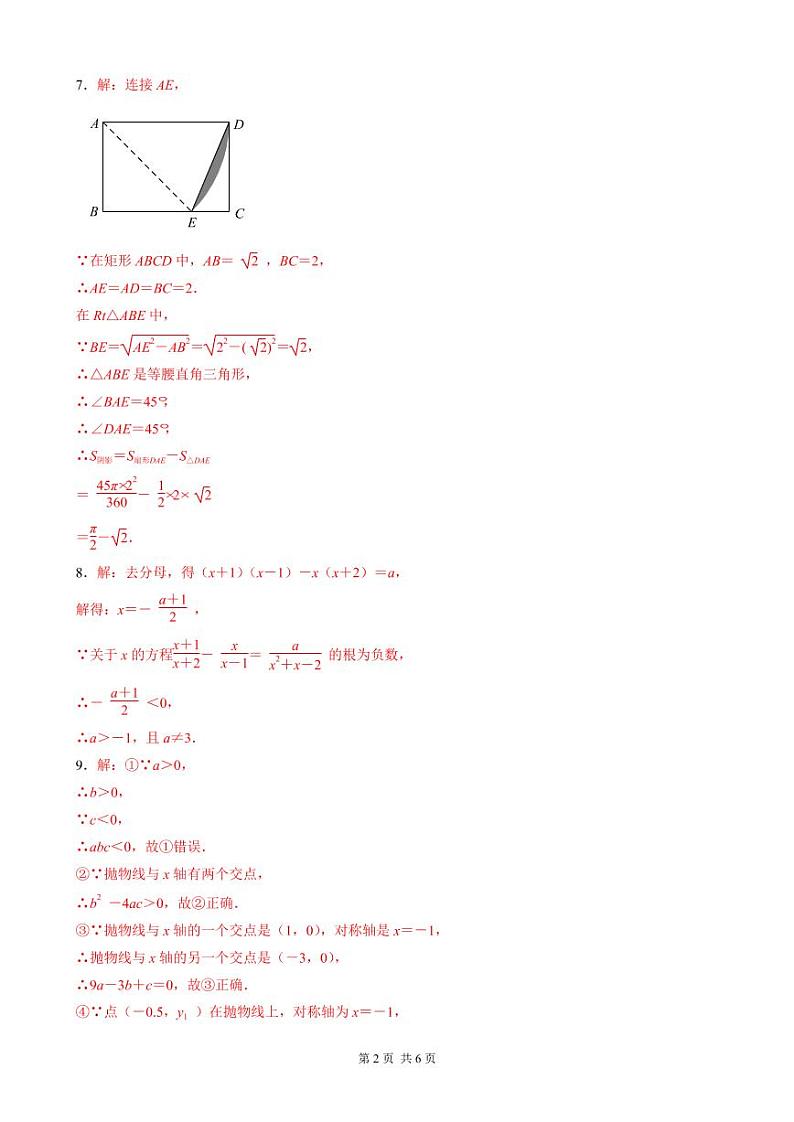 7．解：连接 AE，
A
D
B
E
C
∵在矩形 ABCD 中，AB＝ √2 ，BC＝2，
∴AE＝AD＝BC＝2．
在 Rt△ABE 中，
∵BE＝√(AE²－AB²)＝√(2²－( √2)²)＝√2，
∴△ABE 是等腰直角三角形，
∴∠BAE＝45°，
∴∠DAE＝45°，
∴S阴影＝S扇形DAE－S△DAE
＝ 45π×2²/360－ 1/2×2× √2
＝π/2－√2．
8．解：去分母，得（x＋1）（x－1）－x（x＋2）＝a，
解得：x＝－ a＋1/2 ，
∵关于 x 的方程x＋1/x＋2－ x/x－1＝ a/x²＋x－2 的根为负数，
∴－ a＋1/2 ＜0，
∴a＞－1，且 a≠3．
9．解：①∵a＞0，
∴b＞0，
∵c＜0，
∴abc＜0，故①错误．
②∵抛物线与 x 轴有两个交点，
∴b² －4ac＞0，故②正确．
③∵抛物线与 x 轴的一个交点是（1，0），对称轴是 x＝－1，
∴抛物线与 x 轴的另一个交点是（－3，0），
∴9a－3b＋c＝0，故③正确．
④∵点（－0.5，y₁ ）在抛物线上，对称轴为 x＝－1，
第 2 页 共 6 页